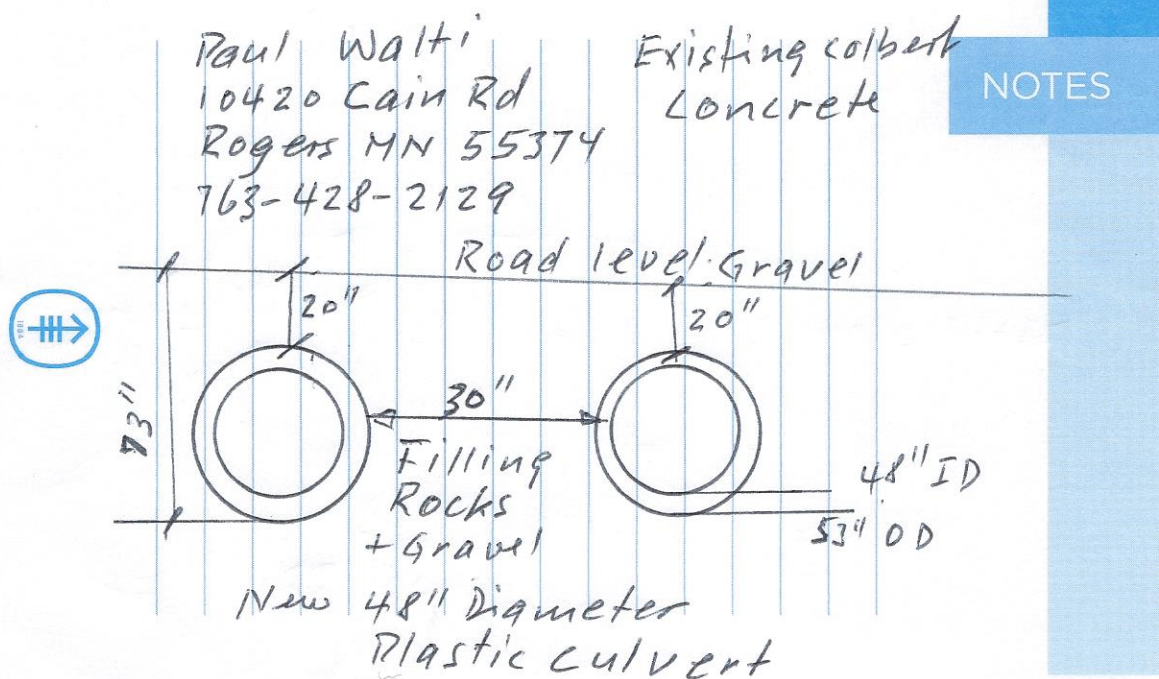 Paul Walti
10420 Cain Rd
Rogers MN 55374
763-428-2129
Existing colbert
concrete
NOTES
Road level Gravel
20"
20"
73"
30"
Filling
Rocks
+ Gravel
48" ID
53" OD
New 48" Diameter
Plastic culvert